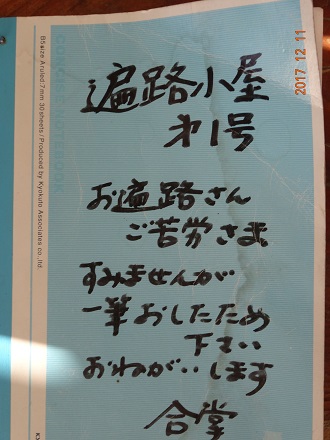 遍路小屋
オ1号
お遍路さん
ご苦労さま
すみませんが
一筆おしたため
下さい
おねがいします
合掌
2017 12 11
B5size A ruled/7mm 30sheets/Produced by Kyokuto Associates co.,ltd.